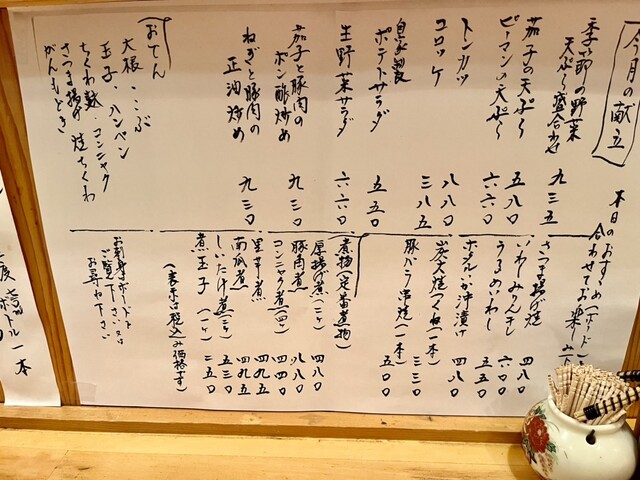 今月の献立
本日のおすすめ(ボード)と
合わせてお楽しみ下
季節の野菜
天ぷら盛合わせ 九三五
茄子の天ぷら 五八〇
ピーマンの天ぷら 六六〇
トンカツ 八八〇
コロッケ 三八五
自家製
ポテトサラダ 五五〇
生野菜サラダ 六六〇
茄子と豚肉の
ポン酢炒め 九三〇
ねぎと豚肉の
正油炒め 九三〇
(おでん)
大根・こぶ
玉子・ハンペン
ちくわ麩・コンニャク
さつま揚げ 焼ちくわ
がんもどき
さつま揚げ焼 四八〇
いわしみりん干し 六〇〇
うるめいわし 五五〇
ホタルいか沖漬け 四八〇
炭火焼(一本) 三三〇
豚バラ串焼(一本) 五〇〇
(煮物)(定番煮物)
厚揚げ煮(二ケ) 四八〇
豚肉煮 八八〇
コンニャク煮(四ケ) 四四〇
里芋煮 四九五
南瓜煮 四九五
しいたけ煮(三ケ) 五三〇
煮玉子(一ケ) 二五〇
(表示は税込み価格です)
お刺身はボードを
ご覧下さい又は
お尋ね下さい
ボトル一本